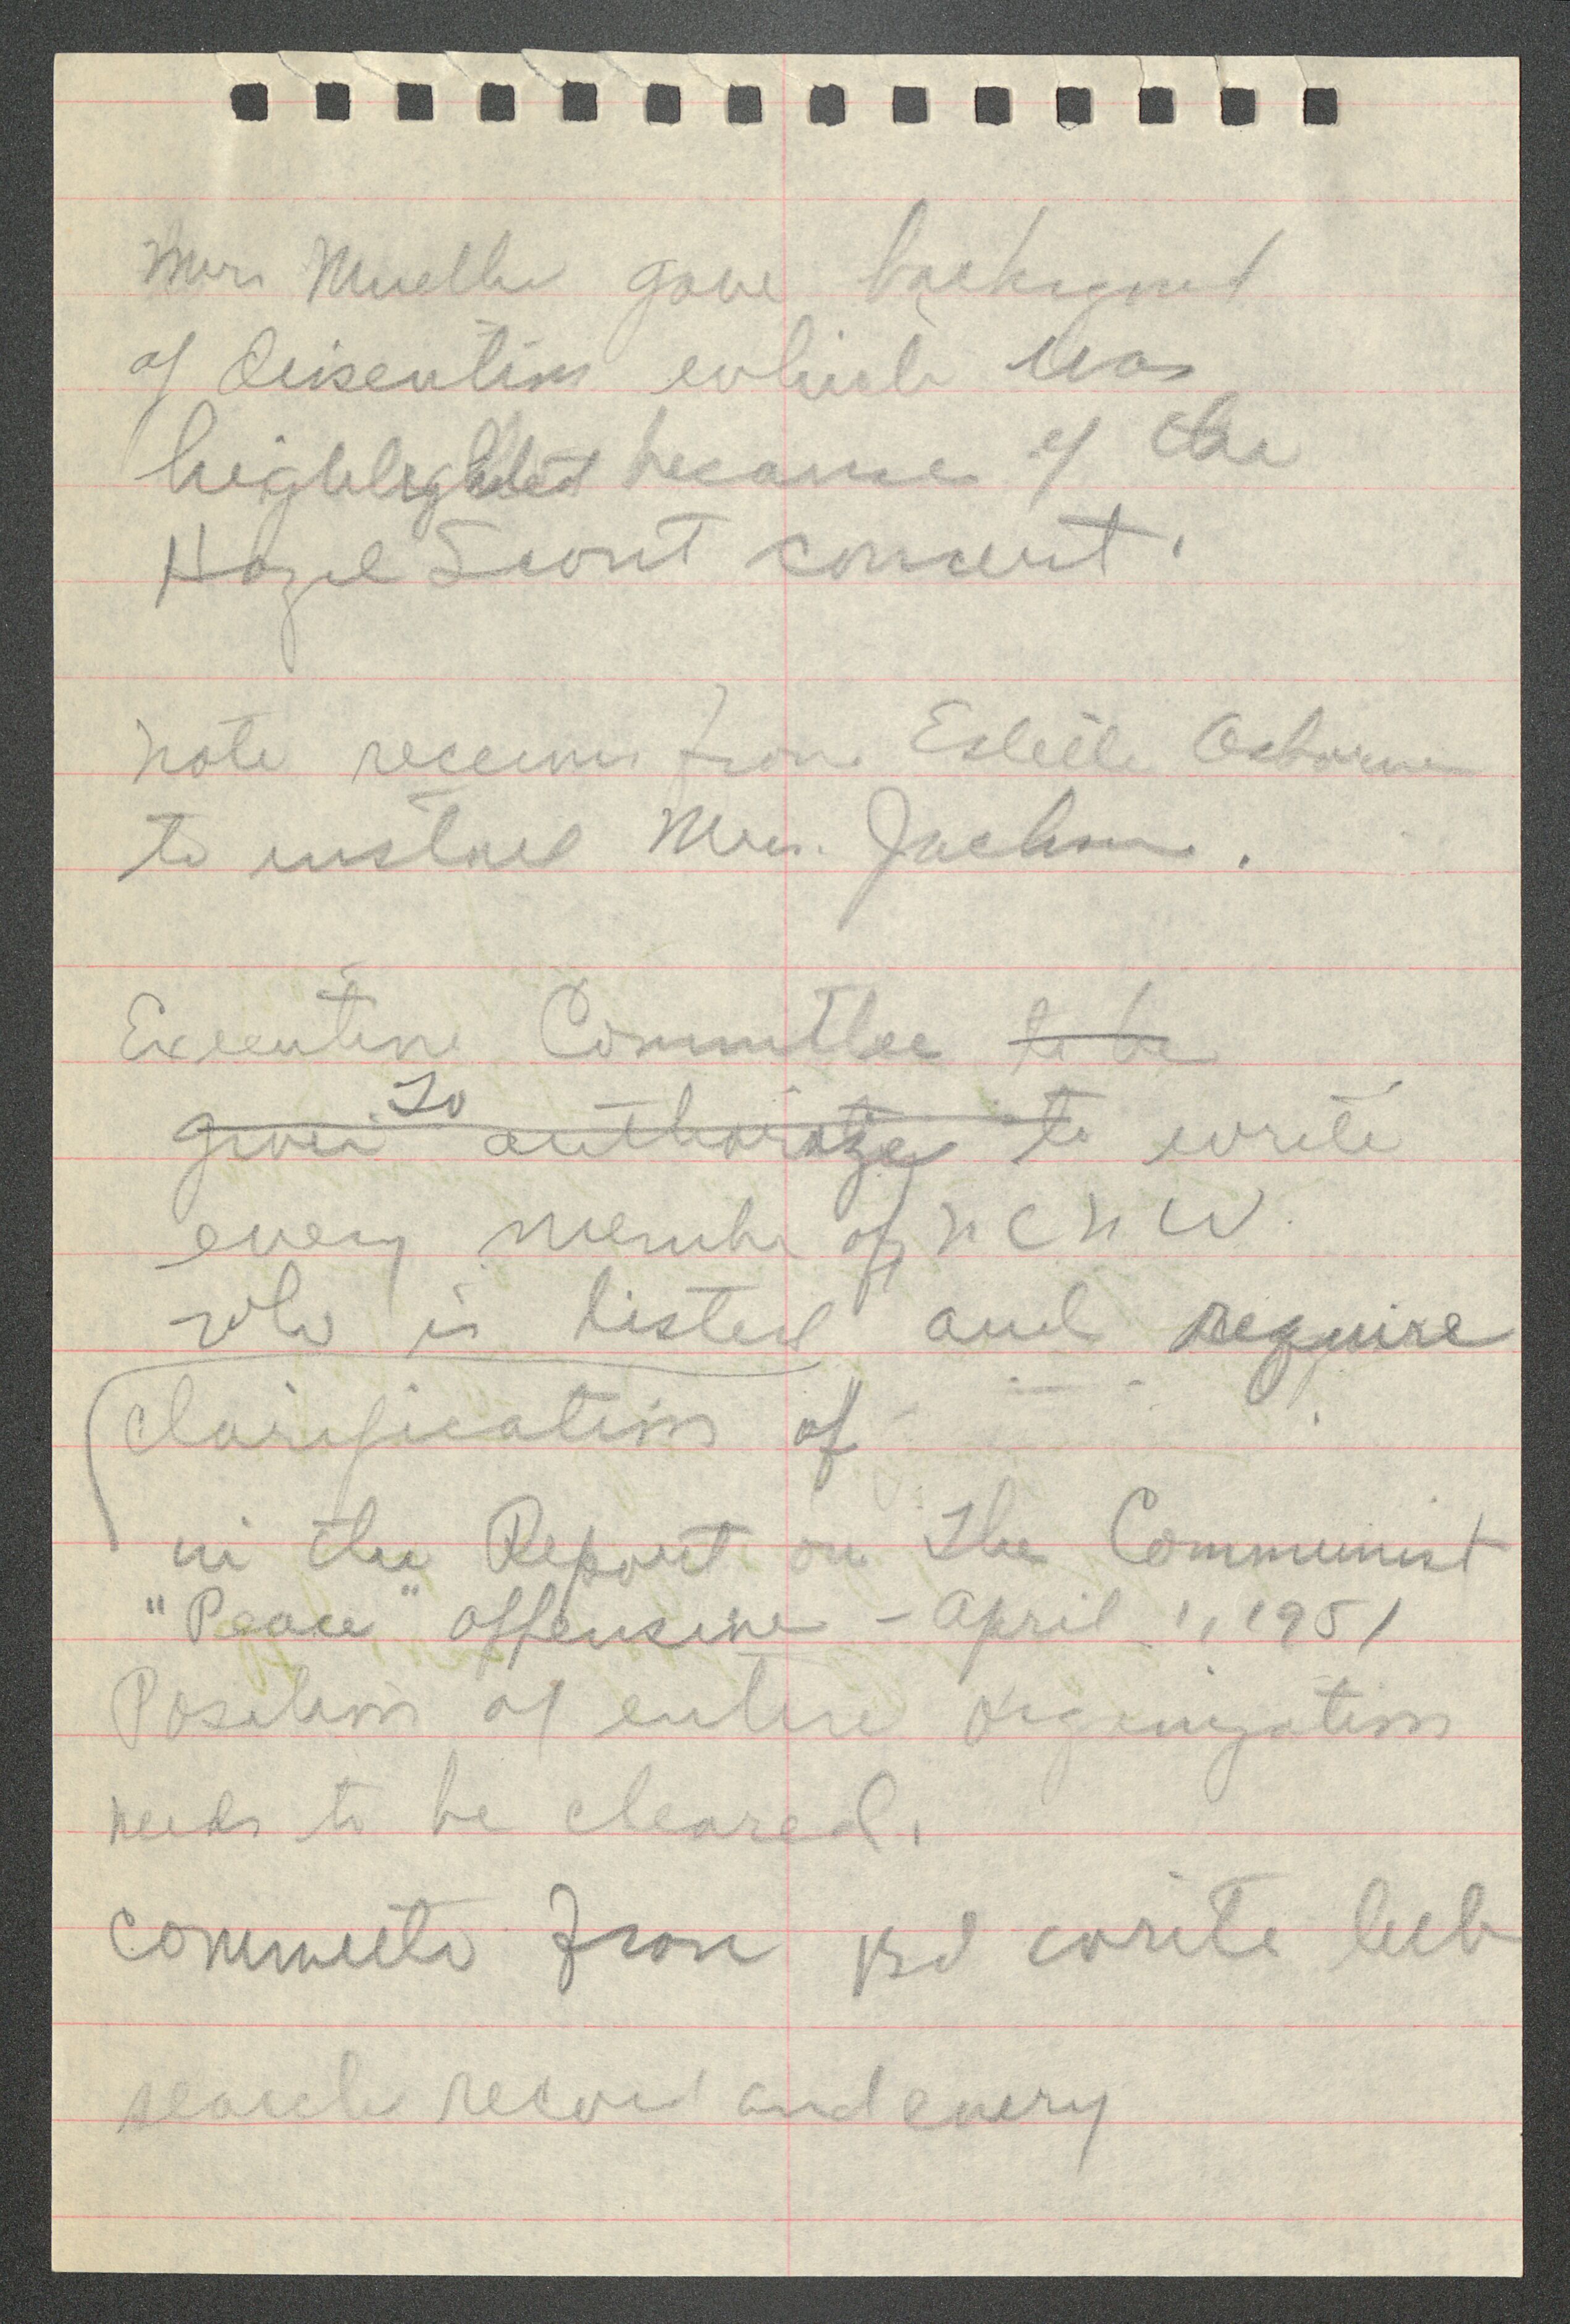 Mrs Mueller gave backgrund
of disention which was
highlighted because of the
Hazel Scott concert.
note received from Estelle Osborne
to install Mrs. Jackson.
Executive Committee to be
given To authorize to write
every member of NCNW
who is listed and require
clarification of
in the Report on the Communist
"Peace" offensive - April 1, 1951
Position of entire organization
needs to be cleared.
committe from Bd write
search record and every